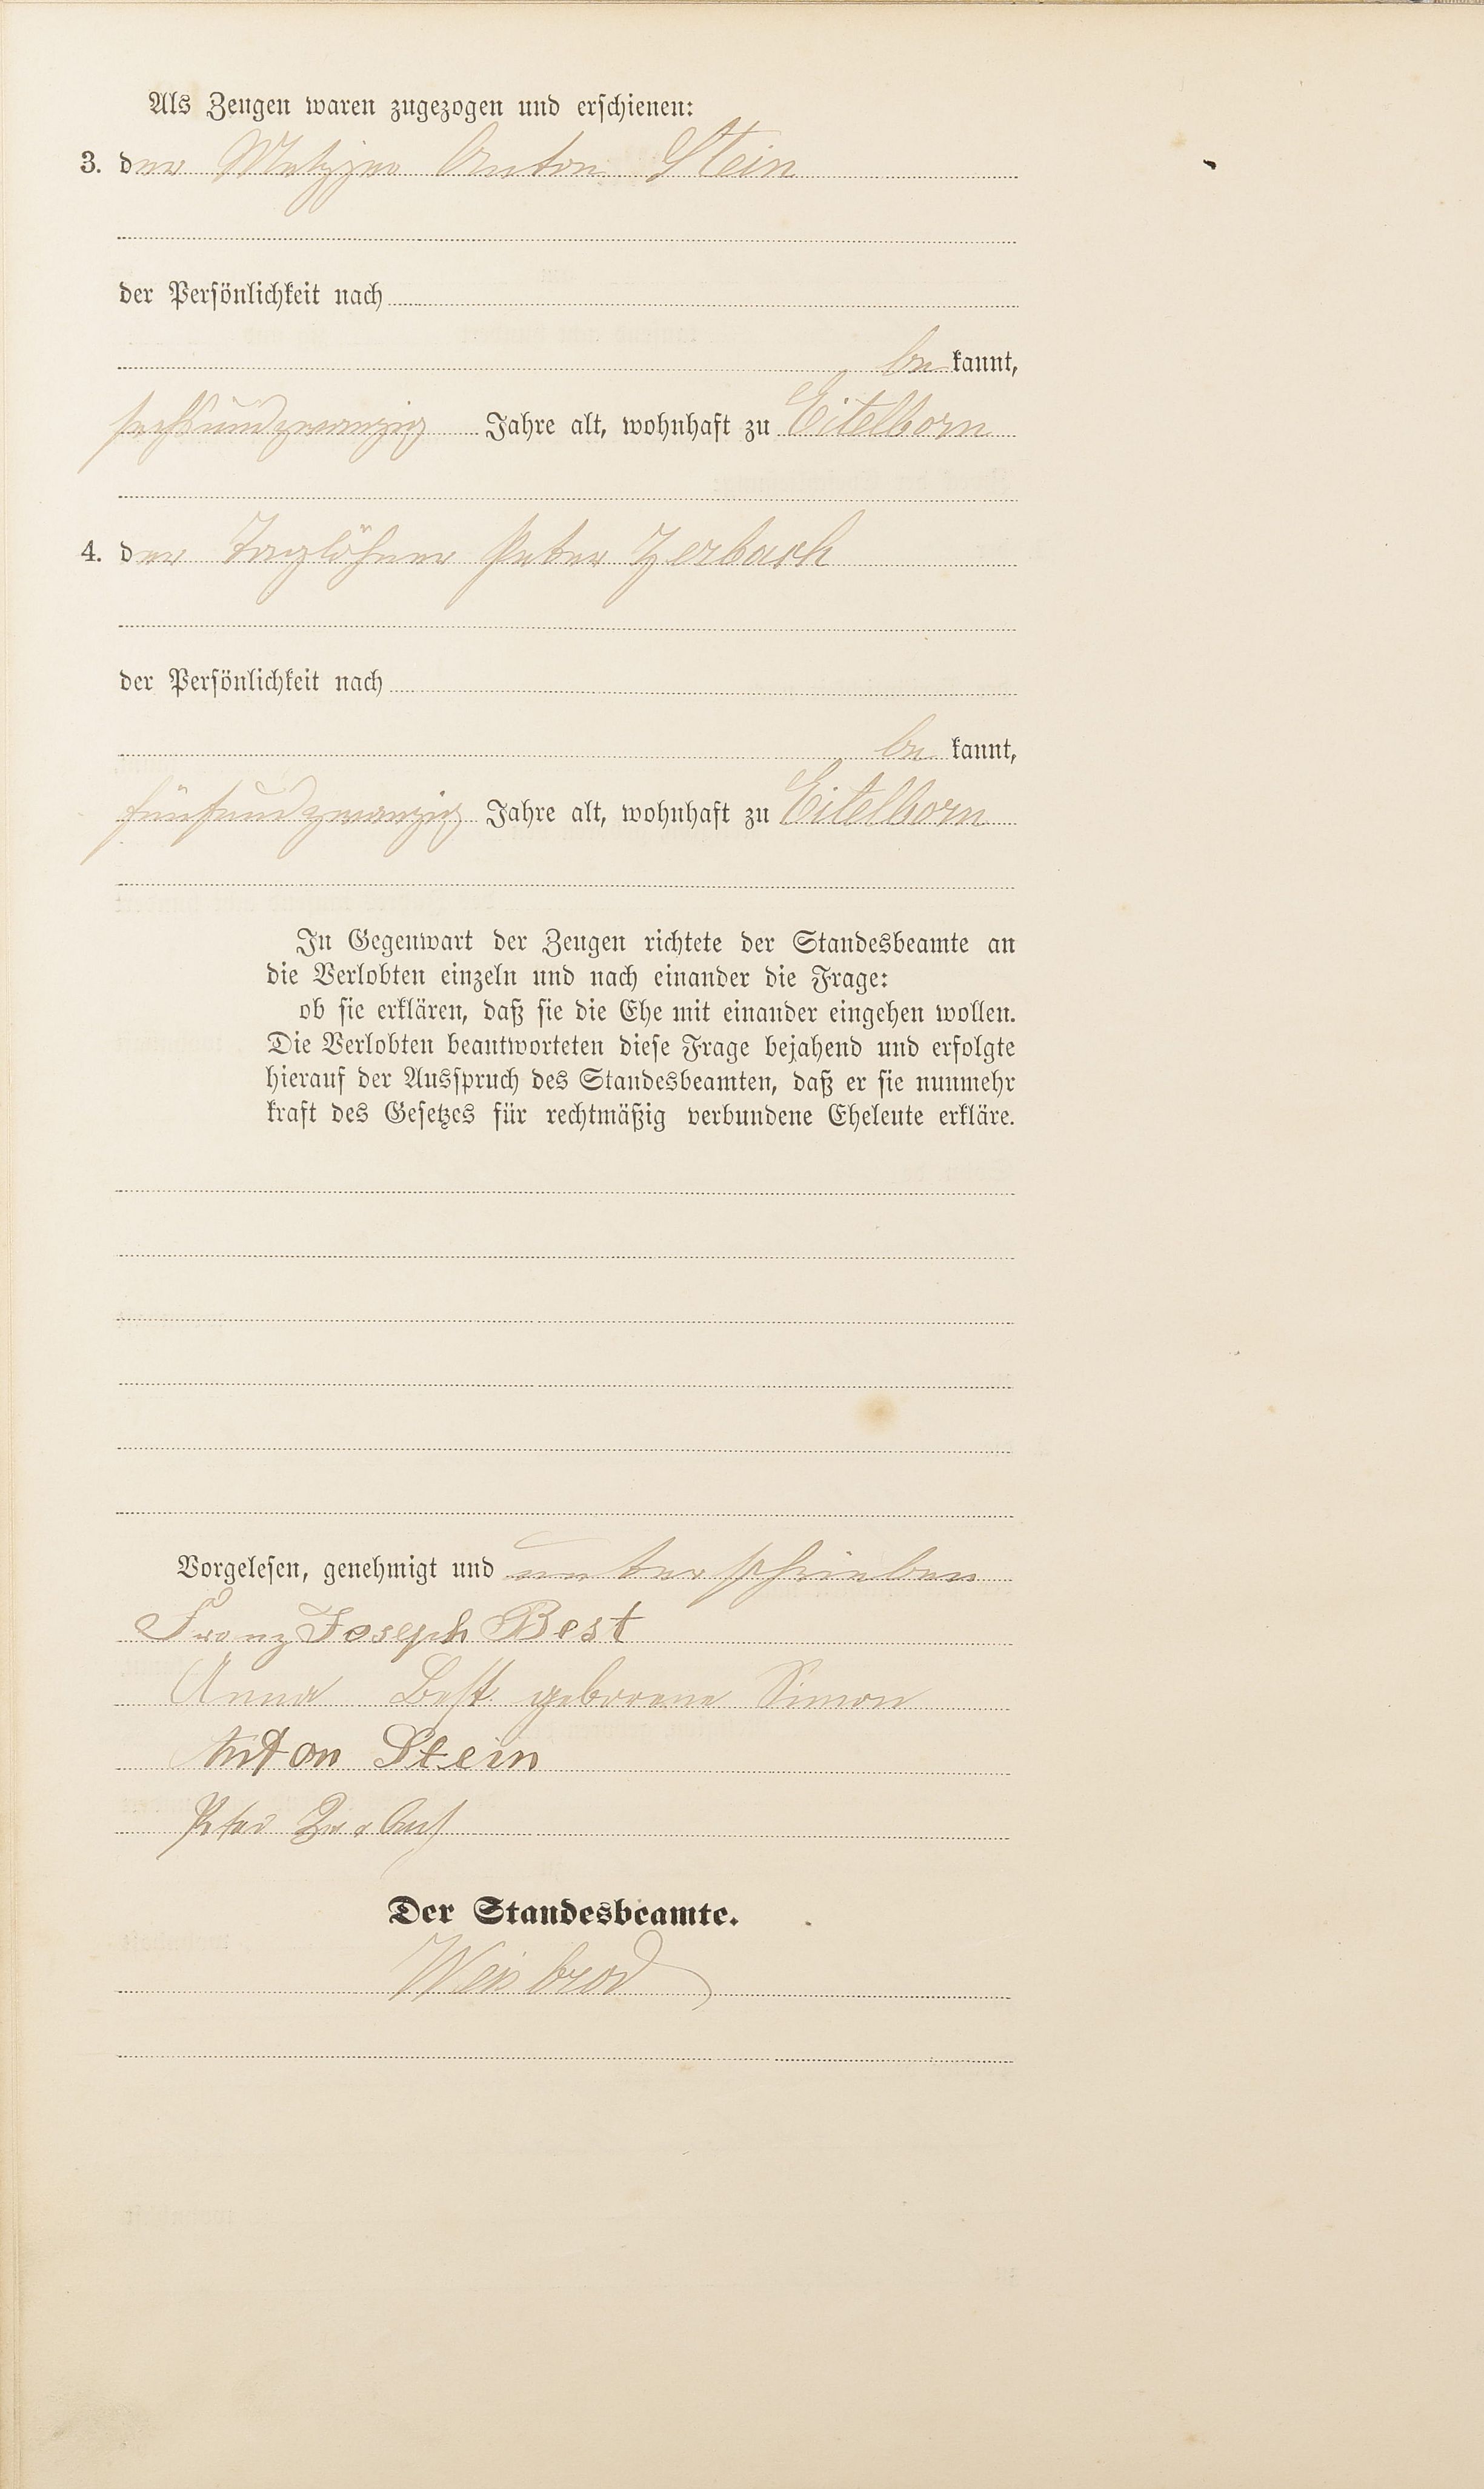 Als Zeugen waren zugezogen und erschienen:
3. der Metzger Anton Stein
der Persönlichkeit nach
be kannt,
sechsundzwanzig Jahre alt, wohnhaft zu Eitelborn
4. der Taglöhner Peter Zerbach
der Persönlichkeit nach
be kannt,
fünfundzwanzig Jahre alt, wohnhaft zu Eitelborn
In Gegenwart der Zeugen richtete der Standesbeamte an
die Verlobten einzeln und nach einander die Frage:
ob sie erklären, daß sie die Ehe mit einander eingehen wollen.
Die Verlobten beantworteten diese Frage bejahend und erfolgte
hierauf der Ausspruch des Standesbeamten, daß er sie nunmehr
kraft des Gesetzes für rechtmäßig verbundene Eheleute erkläre.
Vorgelesen, genehmigt und unterschrieben
Franz Joseph Best
Anna Best geborene Simon
Anton Stein
Peter Zerbach
Der Standesbeamte.
Weisbrod